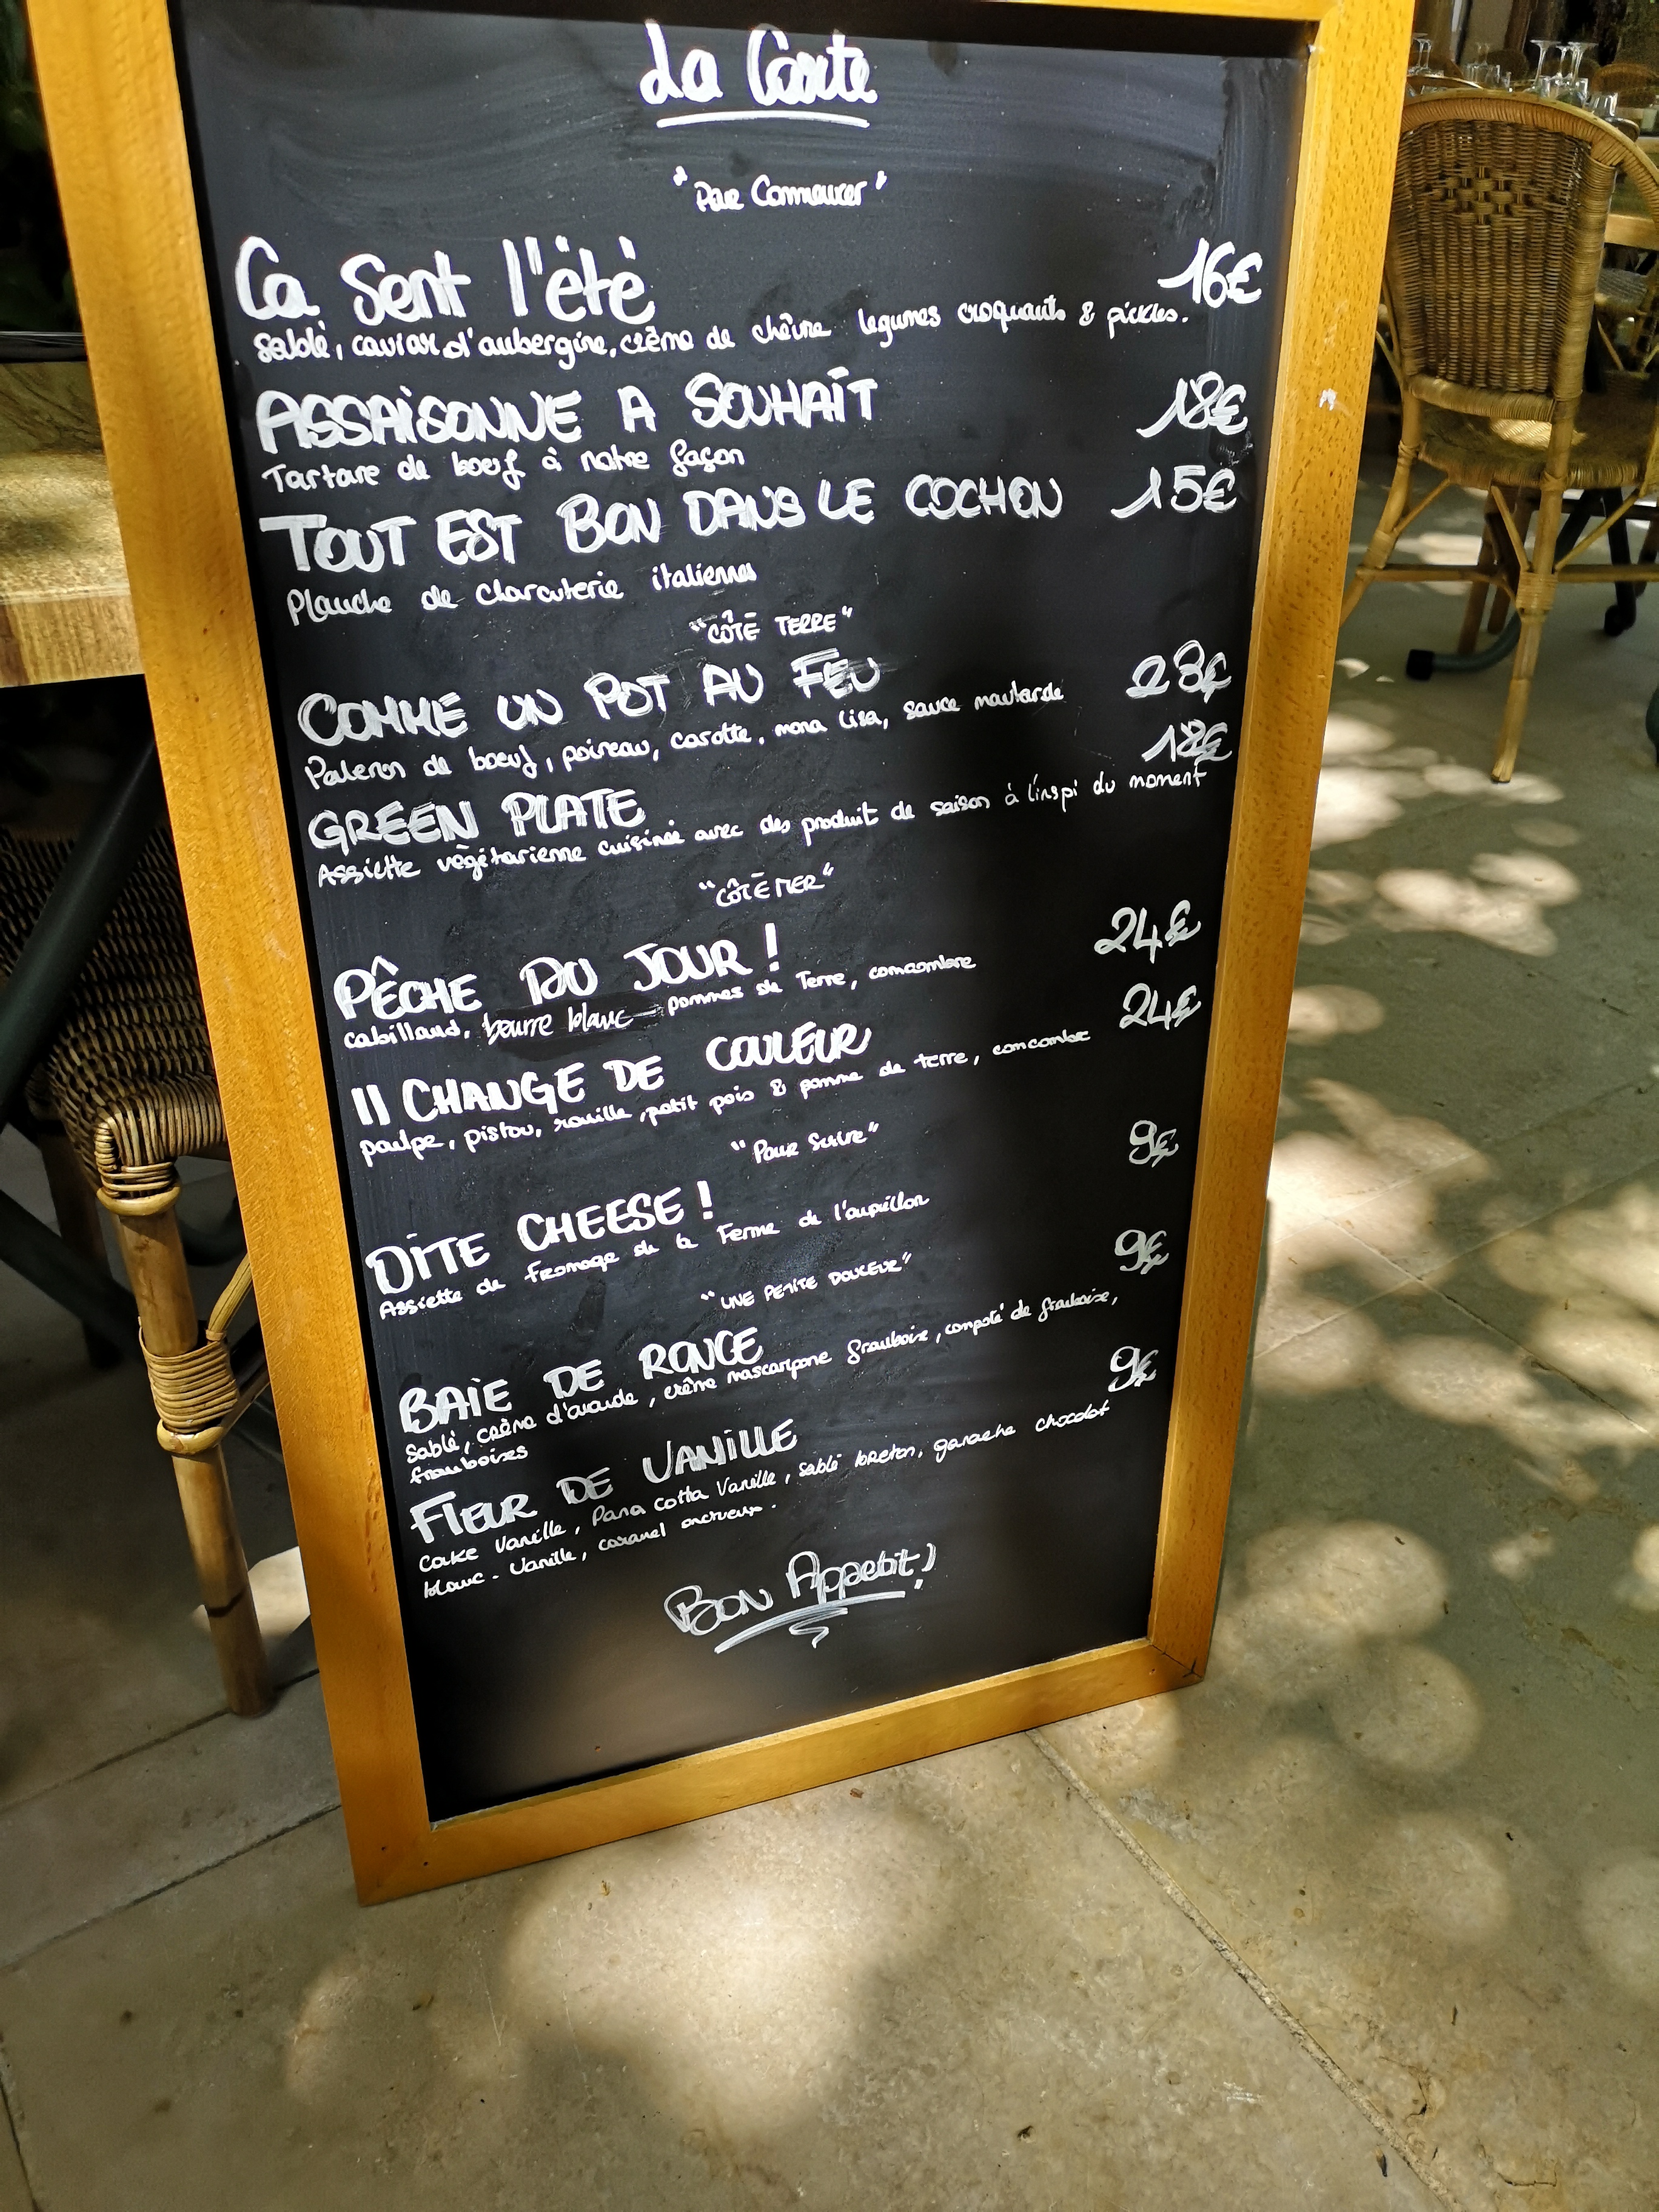 La Carte
"Pour Commencer"
Ca Sent l'été 16€
Sablé, caviar d'aubergine, crème de chèvre légumes croquants & pickles.
ASSAISONNE A SOUHAIT 18€
Tartare de boeuf à notre façon
TOUT EST BON DANS LE COCHON 15€
Planche de charcuterie italiennes
"CÔTÉ TERRE"
COMME UN POT AU FEU 23€
Paleron de boeuf, poireau, carotte, mona lisa, sauce moutarde
GREEN PLATE 18€
Assiette végétarienne cuisinée avec des produit de saison à l'inspi du moment
"CÔTÉ MER"
PÊCHE DU JOUR ! 24€
cabillaud, beurre blanc pommes de Terre, concombre
Il CHANGE DE COULEUR 24€
poulpe, pistou, rouille, petit pois & pomme de terre, concombre
"Pour Suivre"
DITE CHEESE ! 9€
Assiette de fromage de la Ferme de
"UNE PETITE DOUCEUR"
BAIE DE RONCE 9€
Sablé, crème d'amande, crème mascarpone framboise, compoté de framboise,
framboises
FlEUR DE VANILLE 9€
Cake Vanille, Pana cotta Vanille, sablé breton, ganache chocolat
blanc - Vanille, caramel onctueux.
BON Appetit !